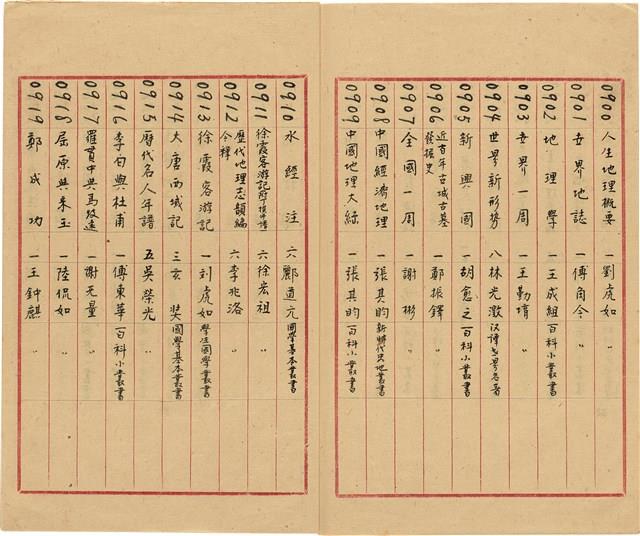 0900 人生地理概要 一 劉虎如
0901 世界地誌 一 傅角今 〃
0902 地理學 一 王成組 百科小叢書
0903 世界一周 一 王勤堉 〃
0904 世界新形勢 八 林光澂 漢譯世界名著
0905 新興國 一 胡愈之 百科小叢書
0906 近百年古城古墓發掘史 一 鄭振鐸 〃
0907 全國一周 一 謝彬 〃
0908 中國經濟地理 一 張其昀 新時代史地叢書
0909 中國地理大綱 一 張其昀 百科小叢書
0910 水經注 六 酈道元 國學基本叢書
0911 徐霞客游記 六 徐宏祖 〃
0912 歷代地理志韻編今釋 六 李兆洛 〃
0913 徐霞客游記 一 劉虎如 學生國學叢書
0914 大唐西域記 三 玄奘 國學基本叢書
0915 歷代名人年譜 五 吳榮光 〃
0916 李白與杜甫 一 傅東華 百科小叢書
0917 羅貫中與馬致遠 一 謝无量 〃
0918 屈原與宋玉 一 陸侃如 〃
0919 鄭成功 一 王鍾麒 〃